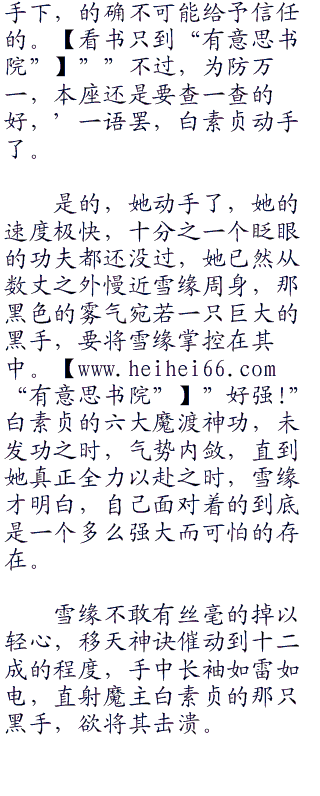 手下，的确不可能给予信任
的。【看书只到“有意思书
院”】””不过，为防万
一，本座还是要查一查的
好，’一语罢，白素贞动手
了。
是的，她动手了，她的
速度极快，十分之一个眨眼
的功夫都还没过，她已然从
数丈之外慢近雪缘周身，那
黑色的雾气宛若一只巨大的
黑手，要将雪缘掌控在其
中。【www.heihei66.com
“有意思书院”】”好强！”
白素贞的六大魔渡神功，未
发功之时，气势内敛，直到
她真正全力以赴之时，雪缘
才明白，自己面对着的到底
是一个多么强大而可怕的存
在。
雪缘不敢有丝毫的掉以
轻心，移天神诀催动到十二
成的程度，手中长袖如雷如
电，直射魔主白素贞的那只
黑手，欲将其击溃。